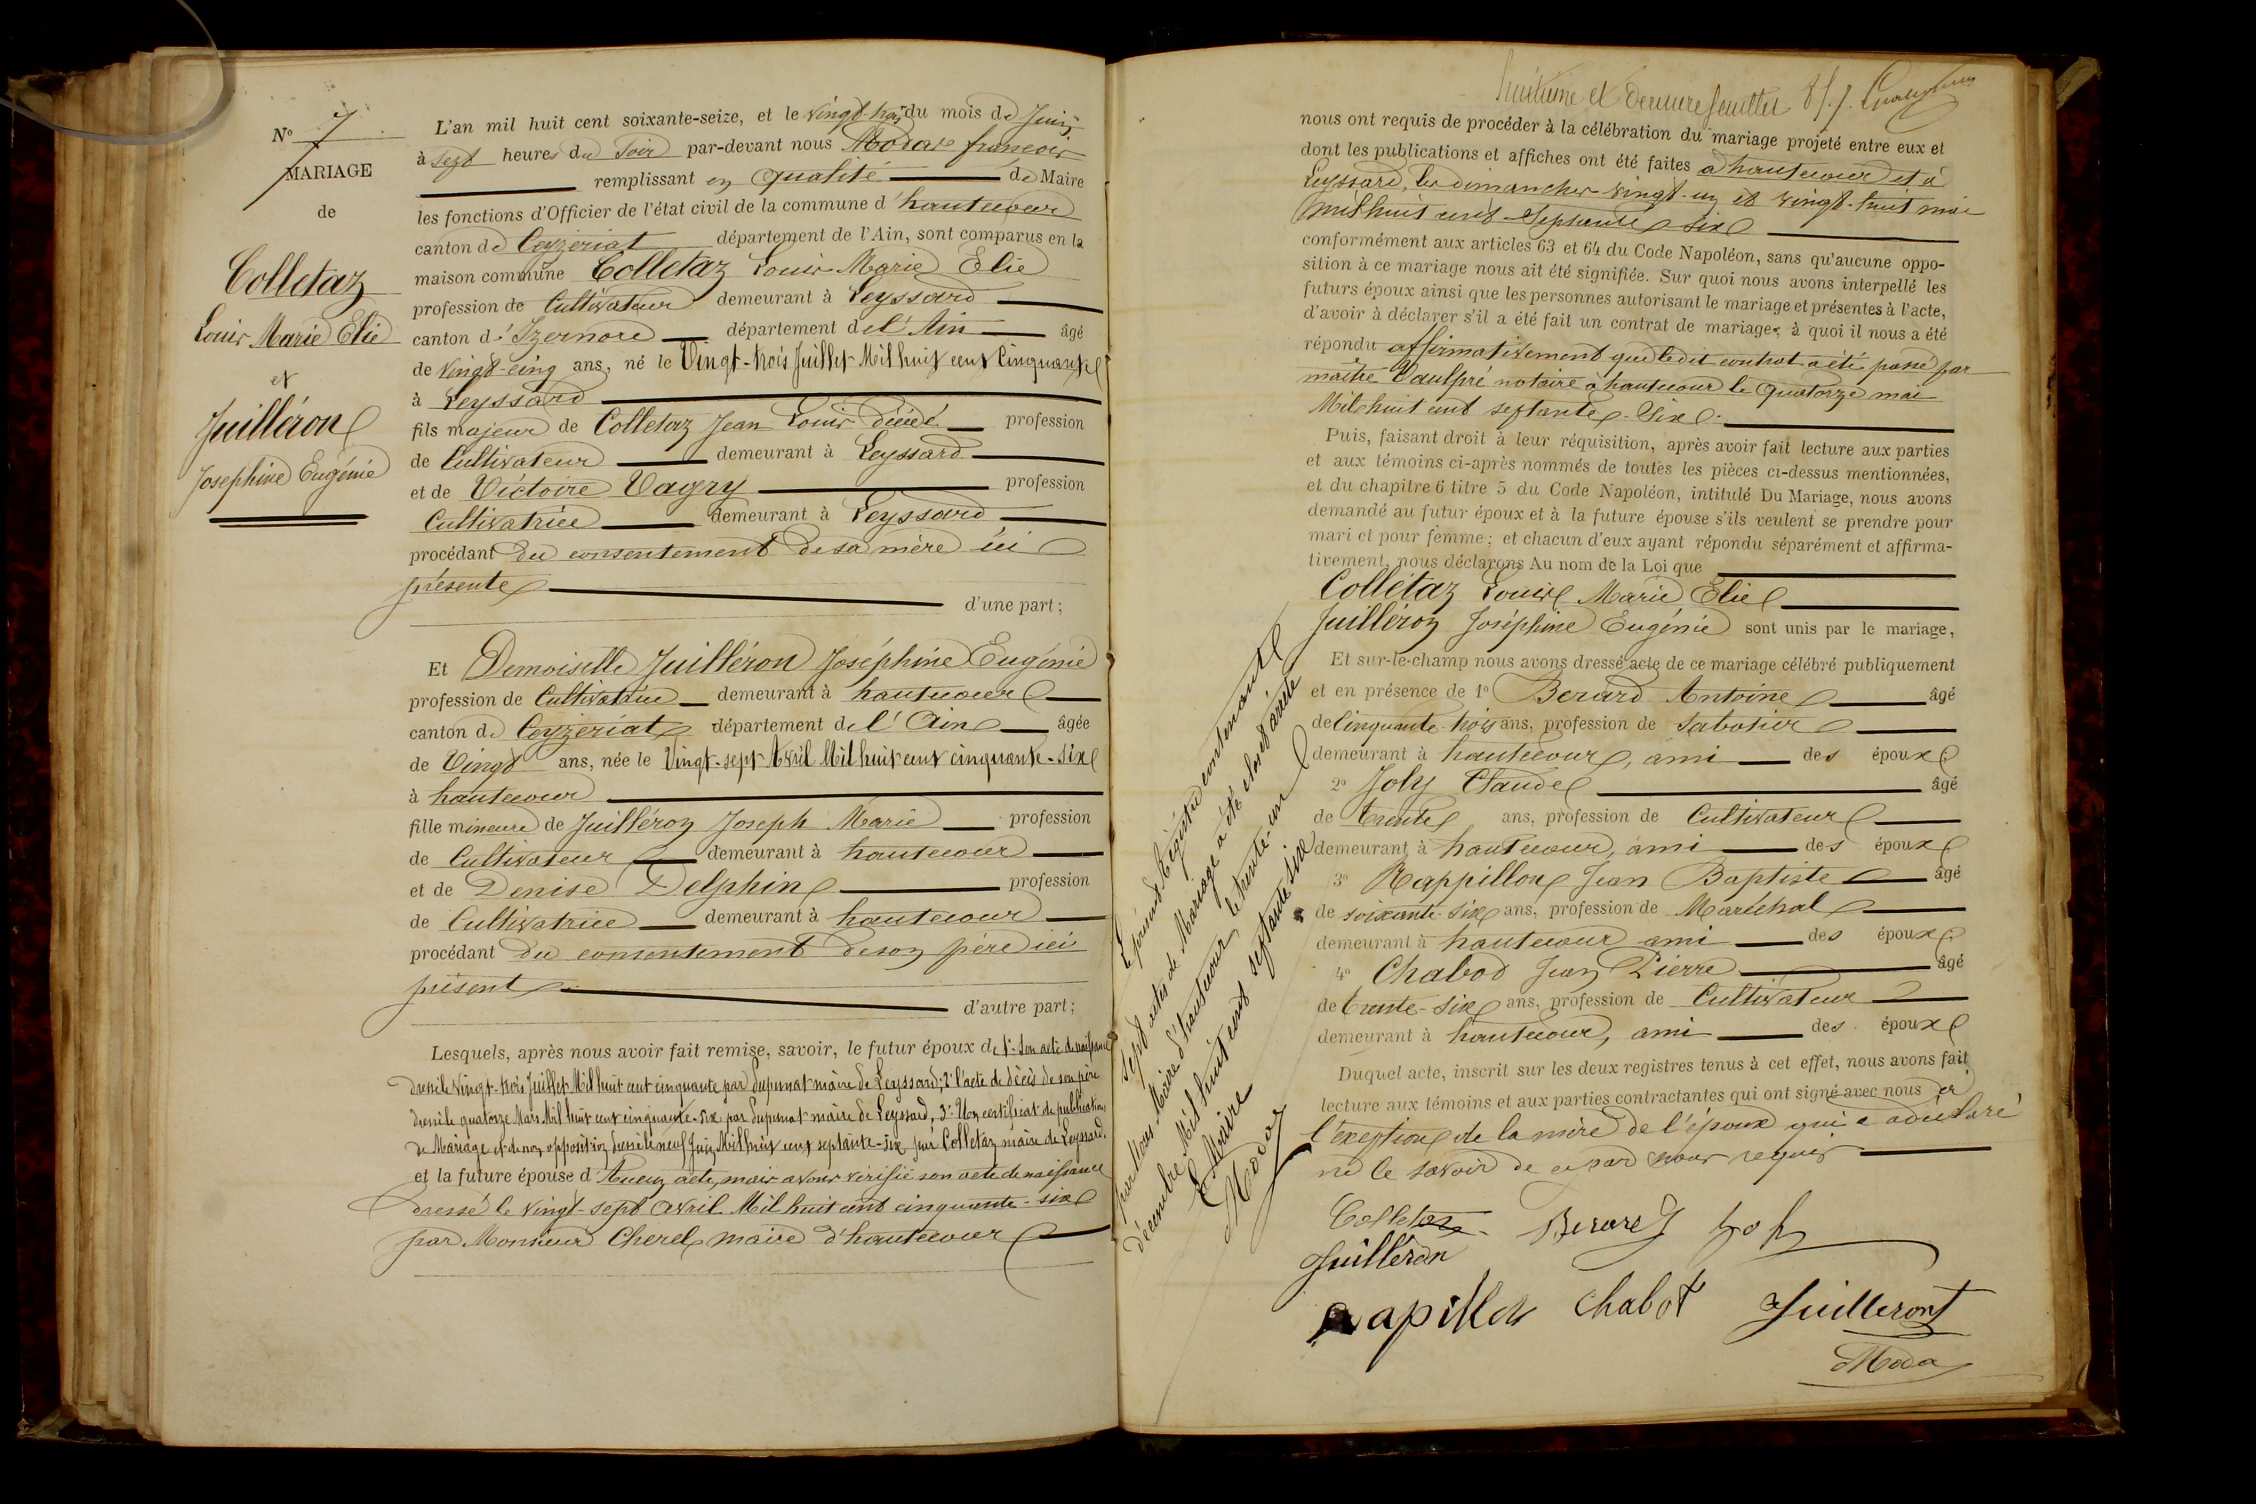 N° 7
MARIAGE
de
Colletaz
Louis Marie Elie
et
Juilléron
Josephine Eugénie
L'an mil huit cent soixante-seize, et le vingt-trois du mois de Juin
à sept heures du soir par-devant nous Modas françois
remplissant en qualité de Maire
les fonctions d'Officier de l'état civil de la commune d'hautecour
canton de Ceyzériat département de l'Ain, sont comparus en la
maison commune Colletaz Louis Marie Elie
profession de Cultivateur demeurant à Leyssard
canton d'Izernore département de l'Ain âgé
de vingt-cinq ans, né le Vingt-trois Juillet Mil huit cent Cinquante
à Leyssard
fils majeur de Colletaz Jean Louis décédé profession
de Cultivateur demeurant à Leyssard
et de Victoire Vagry profession
Cultivatrice demeurant à Leyssard
procédant du consentement de sa mère ici
présente
d'une part;
Et Demoiselle Juilléron Joséphine Eugénie
profession de Cultivatrice demeurant à hautecour
canton de Ceyzériat département de l'Ain âgée
de Vingt ans, née le Vingt-sept Avril Mil huit cent cinquante-six
à hautecour
fille mineure de Juilléron Joseph Marie profession
de Cultivateur demeurant à hautecour
et de Denise Delphine profession
de Cultivatrice demeurant à hautecour
procédant du consentement de son père ici
présent
d'autre part;
Lesquels, après nous avoir fait remise, savoir, le futur époux de 1° Son acte de naissance
dressé le Vingt-trois Juillet Mil huit cent cinquante par Dupunat maire de Leyssard; 2° l'acte de décès de son père
dressé le quatorze Mars Mil huit cent cinquante-six par Dupunat maire de Leyssard, 3° Un certificat de publication
de Mariage et de non opposition dressé le neuf Juin Mil huit cent septante-six par Colletaz maire de Leyssard.
et la future épouse d'Aucun acte, mais avons vérifié son acte de naissance
dressé le vingt-sept avril Mil huit cent cinquante-six
par Monsieur Cherel maire d'hautecour
huitième et dernière feuillet
nous ont requis de procéder à la célébration du mariage projeté entre eux et
dont les publications et affiches ont été faites à hautecour et à
Leyssard, les dimanches vingt-un et vingt-huit mai
mil huit cent septante six
conformément aux articles 63 et 64 du Code Napoléon, sans qu'aucune oppo-
sition à ce mariage nous ait été signifiée. Sur quoi nous avons interpellé les
futurs époux ainsi que les personnes autorisant le mariage et présentes à l'acte,
d'avoir à déclarer s'il a été fait un contrat de mariage, à quoi il nous a été
répondu affirmativement que ledit contrat a été passé par
maître Vaulpré notaire à hautecour le quatorze mai
Mil huit cent septante-Six.
Puis, faisant droit à leur réquisition, après avoir fait lecture aux parties
et aux témoins ci-après nommés de toutes les pièces ci-dessus mentionnées,
et du chapitre 6 titre 5 du Code Napoléon, intitulé Du Mariage, nous avons
demandé au futur époux et à la future épouse s'ils veulent se prendre pour
mari et pour femme; et chacun d'eux ayant répondu séparément et affirma-
tivement, nous déclarons Au nom de la Loi que
Collétaz Louis Marie Elie
Juilléron Joséphine Eugénie sont unis par le mariage,
Et sur-le-champ nous avons dressé acte de ce mariage célébré publiquement
et en présence de 1° Berard Antoine âgé
de Cinquante-trois ans, profession de Sabotier
demeurant à hautecour, ami des époux
2° Joly Claude âgé
de trente ans, profession de Cultivateur
demeurant à hautecour, ami des époux
3° Rappillon Jean Baptiste âgé
de soixante-six ans, profession de Maréchal
demeurant à hautecour ami des époux
4° Chabod Jean Pierre âgé
de trente-six ans, profession de Cultivateur
demeurant à hautecour, ami des époux
Duquel acte, inscrit sur les deux registres tenus à cet effet, nous avons fait
lecture aux témoins et aux parties contractantes qui ont signé avec nous à
l'exeption de la mère de l'époux qui a déclaré
ne le savoir de ce par nous requis
Colletaz Berard Joly
Juilléron
Rapillon Chabot Juilleront
Moda
Le présent Régistre contenant
sept actes de Mariage a été clos et arrêté
par Nous Maire d'hautecour, le trente-un
décembre Mil huit cent septante six
Le Maire
Modas